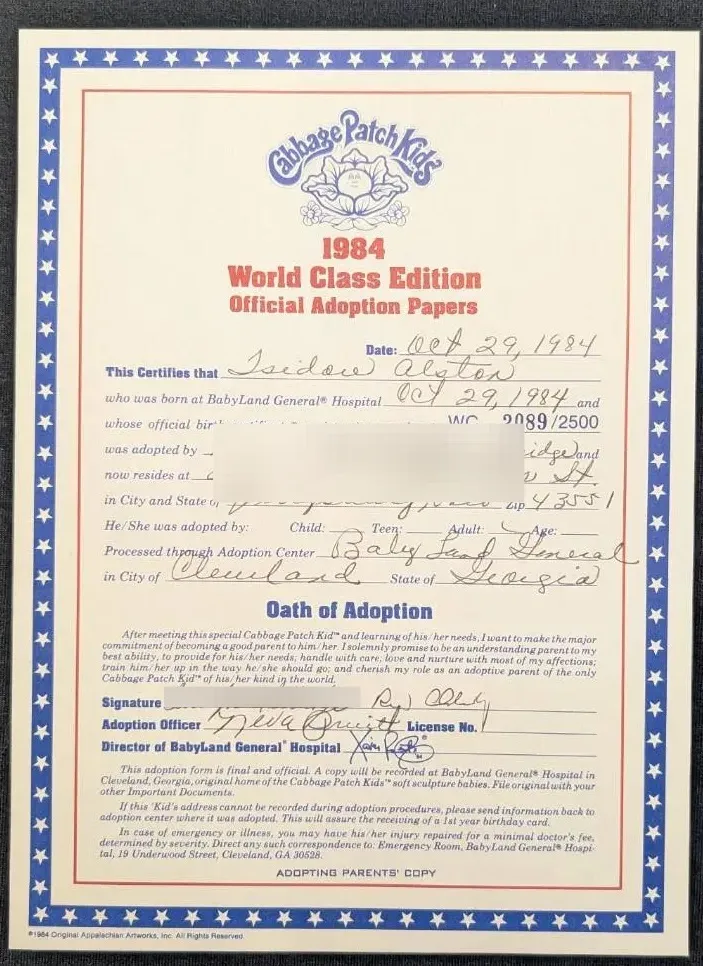 Cabbage Patch Kids
1984
World Class Edition
Official Adoption Papers
Date: Oct 29, 1984
This Certifies that Isidore Alston
who was born at BabyLand General® Hospital Oct 29, 1984 and
whose official WC 2089/2500
was adopted by and
now resides at St.
in City and State of Zip 43551
He/She was adopted by: Child: Teen: Adult: Age:
Processed through Adoption Center Baby Land General
in City of Cleveland State of Georgia
Oath of Adoption
After meeting this special Cabbage Patch Kid™ and learning of his/her needs, I want to make the major
commitment of becoming a good parent to him/her. I solemnly promise to be an understanding parent to my
best ability, to provide for his/her needs; handle with care, love and nurture with most of my affections;
train him/her up in the way he/she should go; and cherish my role as an adoptive parent of the only
Cabbage Patch Kid™ of his/her kind in the world.
Signature
Adoption Officer Neva License No.
Director of BabyLand General® Hospital
This adoption form is final and official. A copy will be recorded at BabyLand General® Hospital in
Cleveland, Georgia, original home of the Cabbage Patch Kids™ soft sculpture babies. File original with your
other Important Documents.
If this 'Kid's address cannot be recorded during adoption procedures, please send information back to
adoption center where it was adopted. This will assure the receiving of a 1st year birthday card.
In case of emergency or illness, you may have his/her injury repaired for a minimal doctor's fee,
determined by severity. Direct any such correspondence to: Emergency Room, BabyLand General® Hospi-
tal, 19 Underwood Street, Cleveland, GA 30528.
ADOPTING PARENTS' COPY
©1984 Original Appalachian Artworks, Inc. All Rights Reserved.